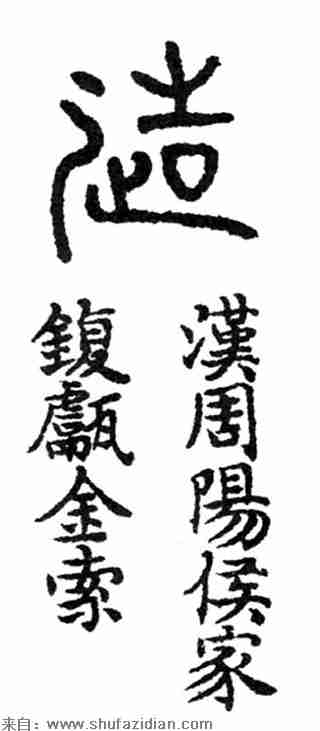 造
漢周陽侯家
鍑甗金索
来自：www.shufazidian.com